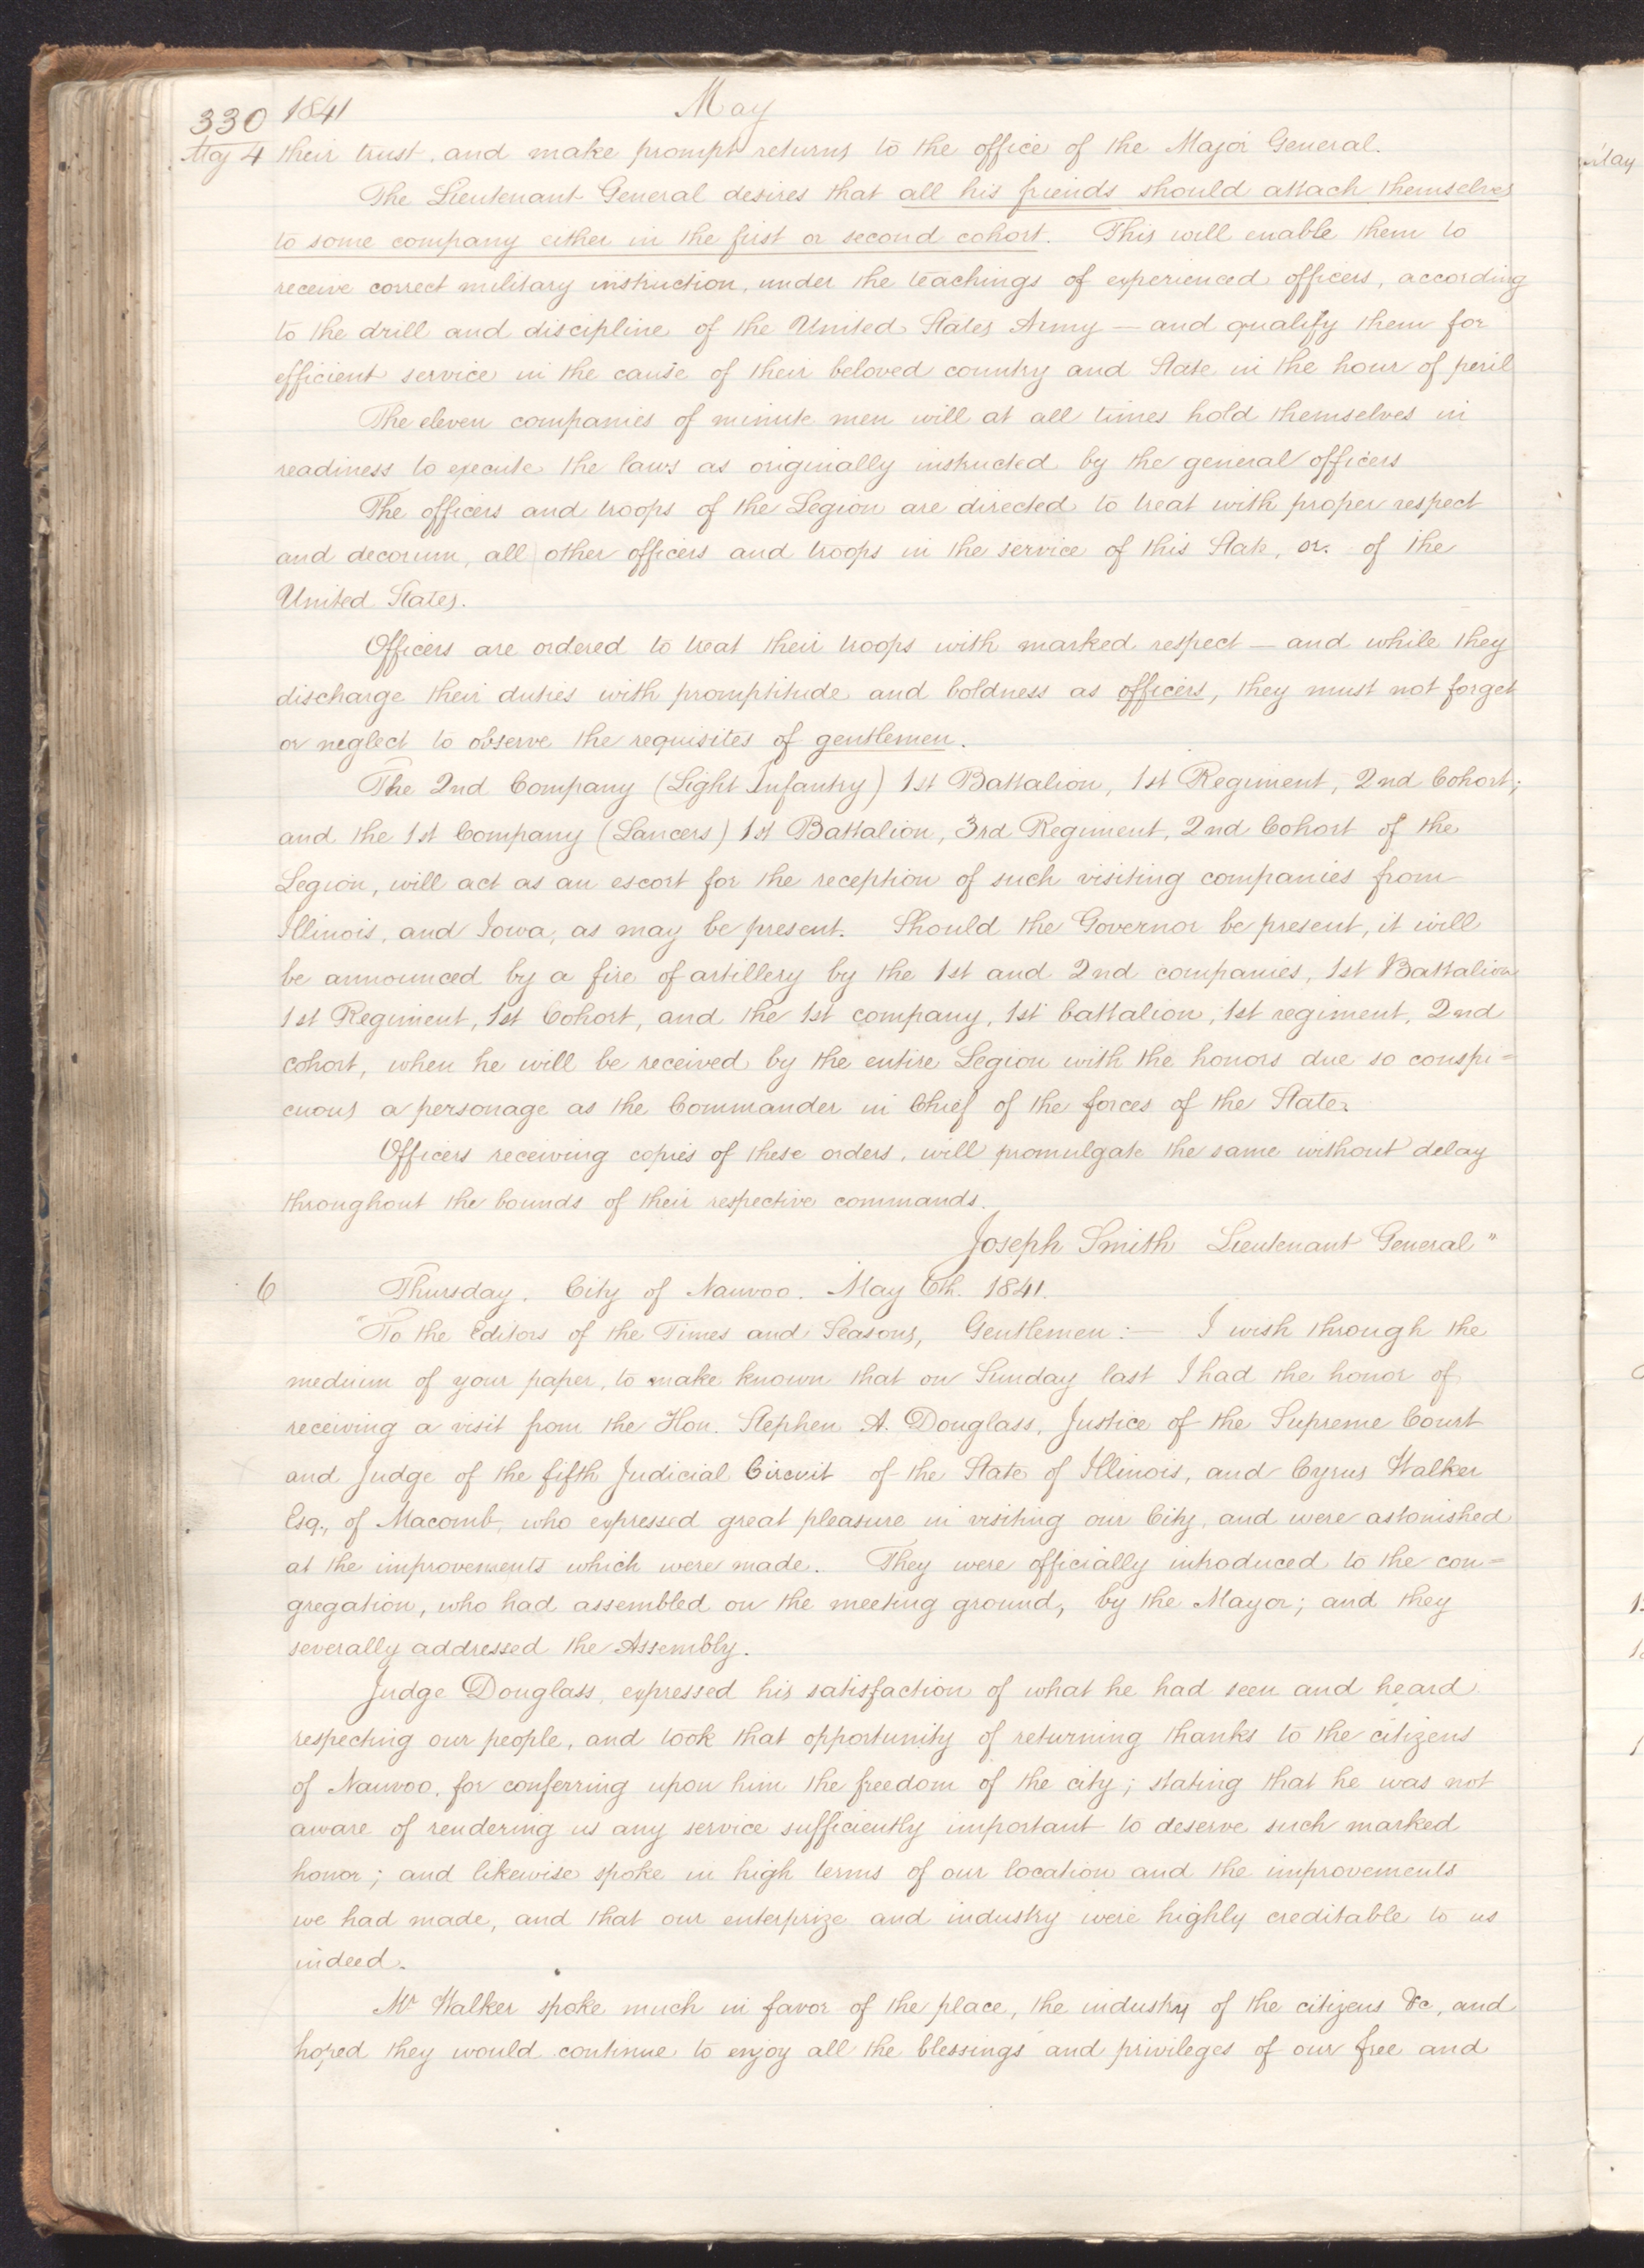 330 1841 May
May 4 their trust, and make prompt returns to the office of the Major General.
The Lieutenant General desires that all his friends should attach themselves
to some company either in the first or second cohort. This will enable them to
receive correct military instruction, under the teachings of experienced officers, according
to the drill and discipline of the United States Army — and qualify them for
efficient service in the cause of their beloved country and State in the hour of peril
The eleven companies of minute men will at all times hold themselves in
readiness to execute the laws as originally instructed by the general officers
The officers and troops of the Legion are directed to treat with proper respect
and decorum, all other officers and troops in the service of this State, or of the
United States.
Officers are ordered to treat their troops with marked respect — and while they
discharge their duties with promptitude and boldness as officers, they must not forget
or neglect to observe the requisites of gentlemen.
The 2nd Company (Light Infantry) 1st Battalion, 1st Regiment, 2nd Cohort;
and the 1st Company (Lancers) 1st Battalion, 3rd Regiment, 2nd Cohort of the
Legion, will act as an escort for the reception of such visiting companies from
Illinois, and Iowa, as may be present. Should the Governor be present, it will
be announced by a fire of artillery by the 1st and 2nd companies, 1st Battalion
1st Regiment, 1st Cohort, and the 1st company, 1st battalion, 1st regiment, 2nd
cohort, when he will be received by the entire Legion with the honors due so conspi=
cuous a personage as the Commander in Chief of the forces of the State.
Officers receiving copies of these orders, will promulgate the same without delay
throughout the bounds of their respective commands.
Joseph Smith Lieutenant General"
6 Thursday. City of Nauvoo. May 6th. 1841.
"To the Editors of the Times and Seasons, Gentlemen:— I wish through the
medium of your paper, to make known that on Sunday last I had the honor of
receiving a visit from the Hon. Stephen A. Douglass, Justice of the Supreme Court
and Judge of the fifth Judicial Circuit of the State of Illinois, and Cyrus Walker
Esq., of Macomb, who expressed great pleasure in visiting our City, and were astonished
at the improvements which were made. They were officially introduced to the con=
gregation, who had assembled on the meeting ground, by the Mayor; and they
severally addressed the Assembly.
Judge Douglass, expressed his satisfaction of what he had seen and heard
respecting our people, and took that opportunity of returning thanks to the citizens
of Nauvoo, for conferring upon him the freedom of the city; stating that he was not
aware of rendering us any service sufficiently important to deserve such marked
honor; and likewise spoke in high terms of our location and the improvements
we had made, and that our enterprize and industry were highly creditable to us
indeed.
Mr Walker spoke much in favor of the place, the industry of the citizens &c, and
hoped they would continue to enjoy all the blessings and privileges of our free and